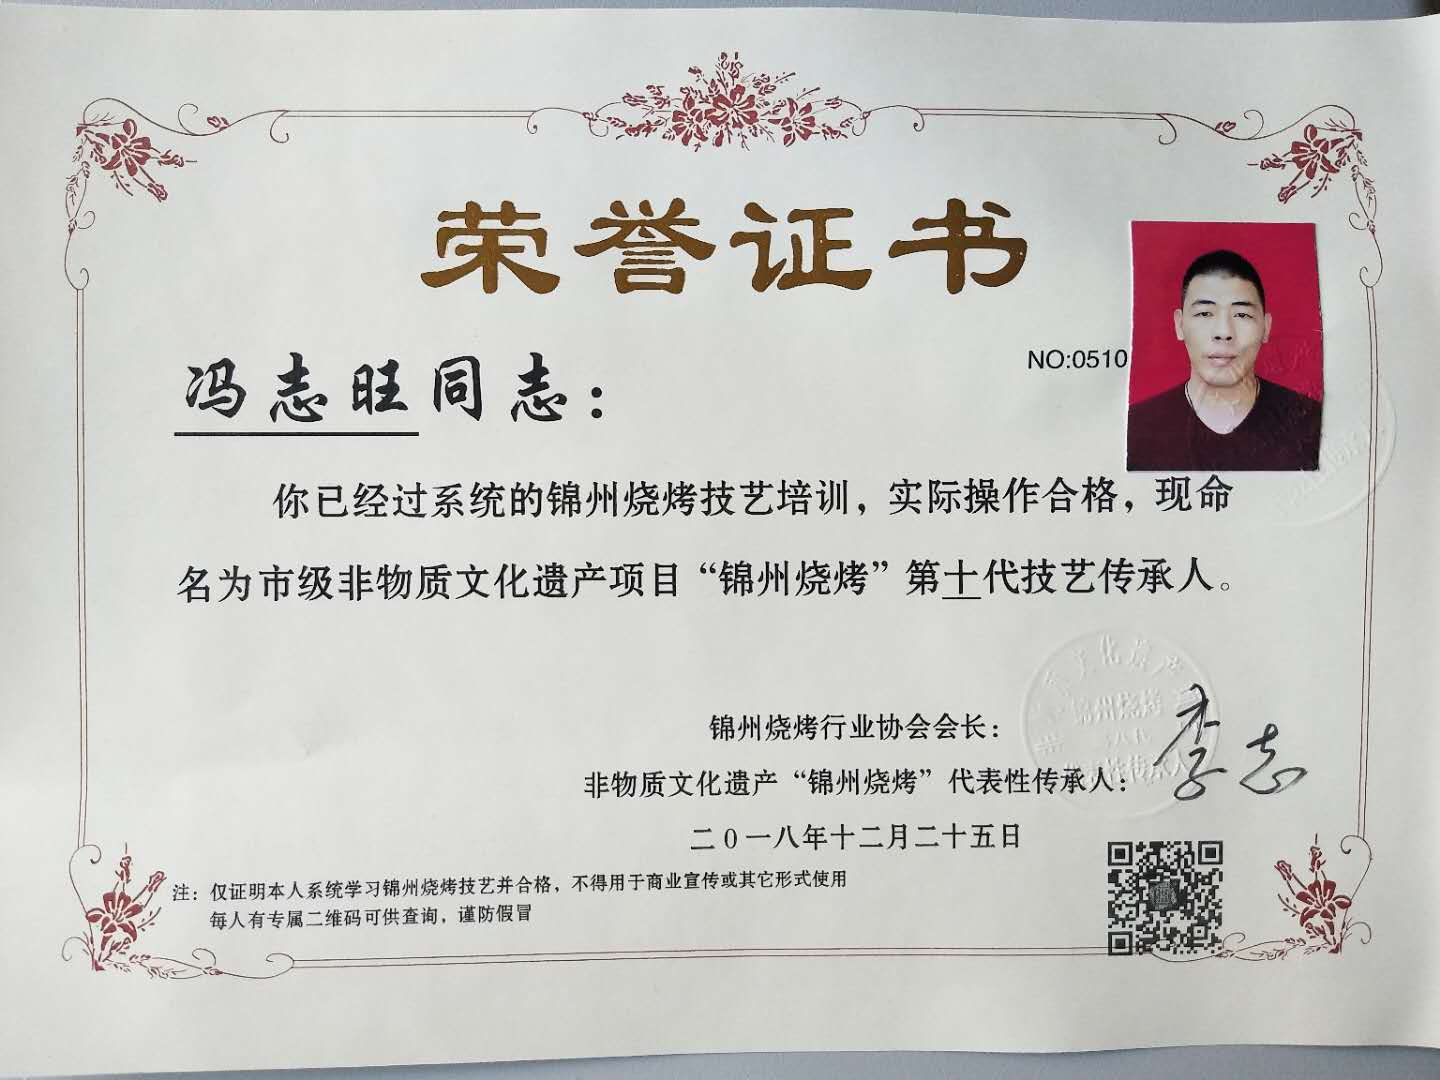 荣誉证书
NO:0510
冯志旺同志：
你已经过系统的锦州烧烤技艺培训，实际操作合格，现命
名为市级非物质文化遗产项目“锦州烧烤”第十代技艺传承人。
锦州烧烤行业协会会长：
非物质文化遗产“锦州烧烤”代表性传承人：
李志
二0一八年十二月二十五日
注：仅证明本人系统学习锦州烧烤技艺并合格，不得用于商业宣传或其它形式使用
每人有专属二维码可供查询，谨防假冒